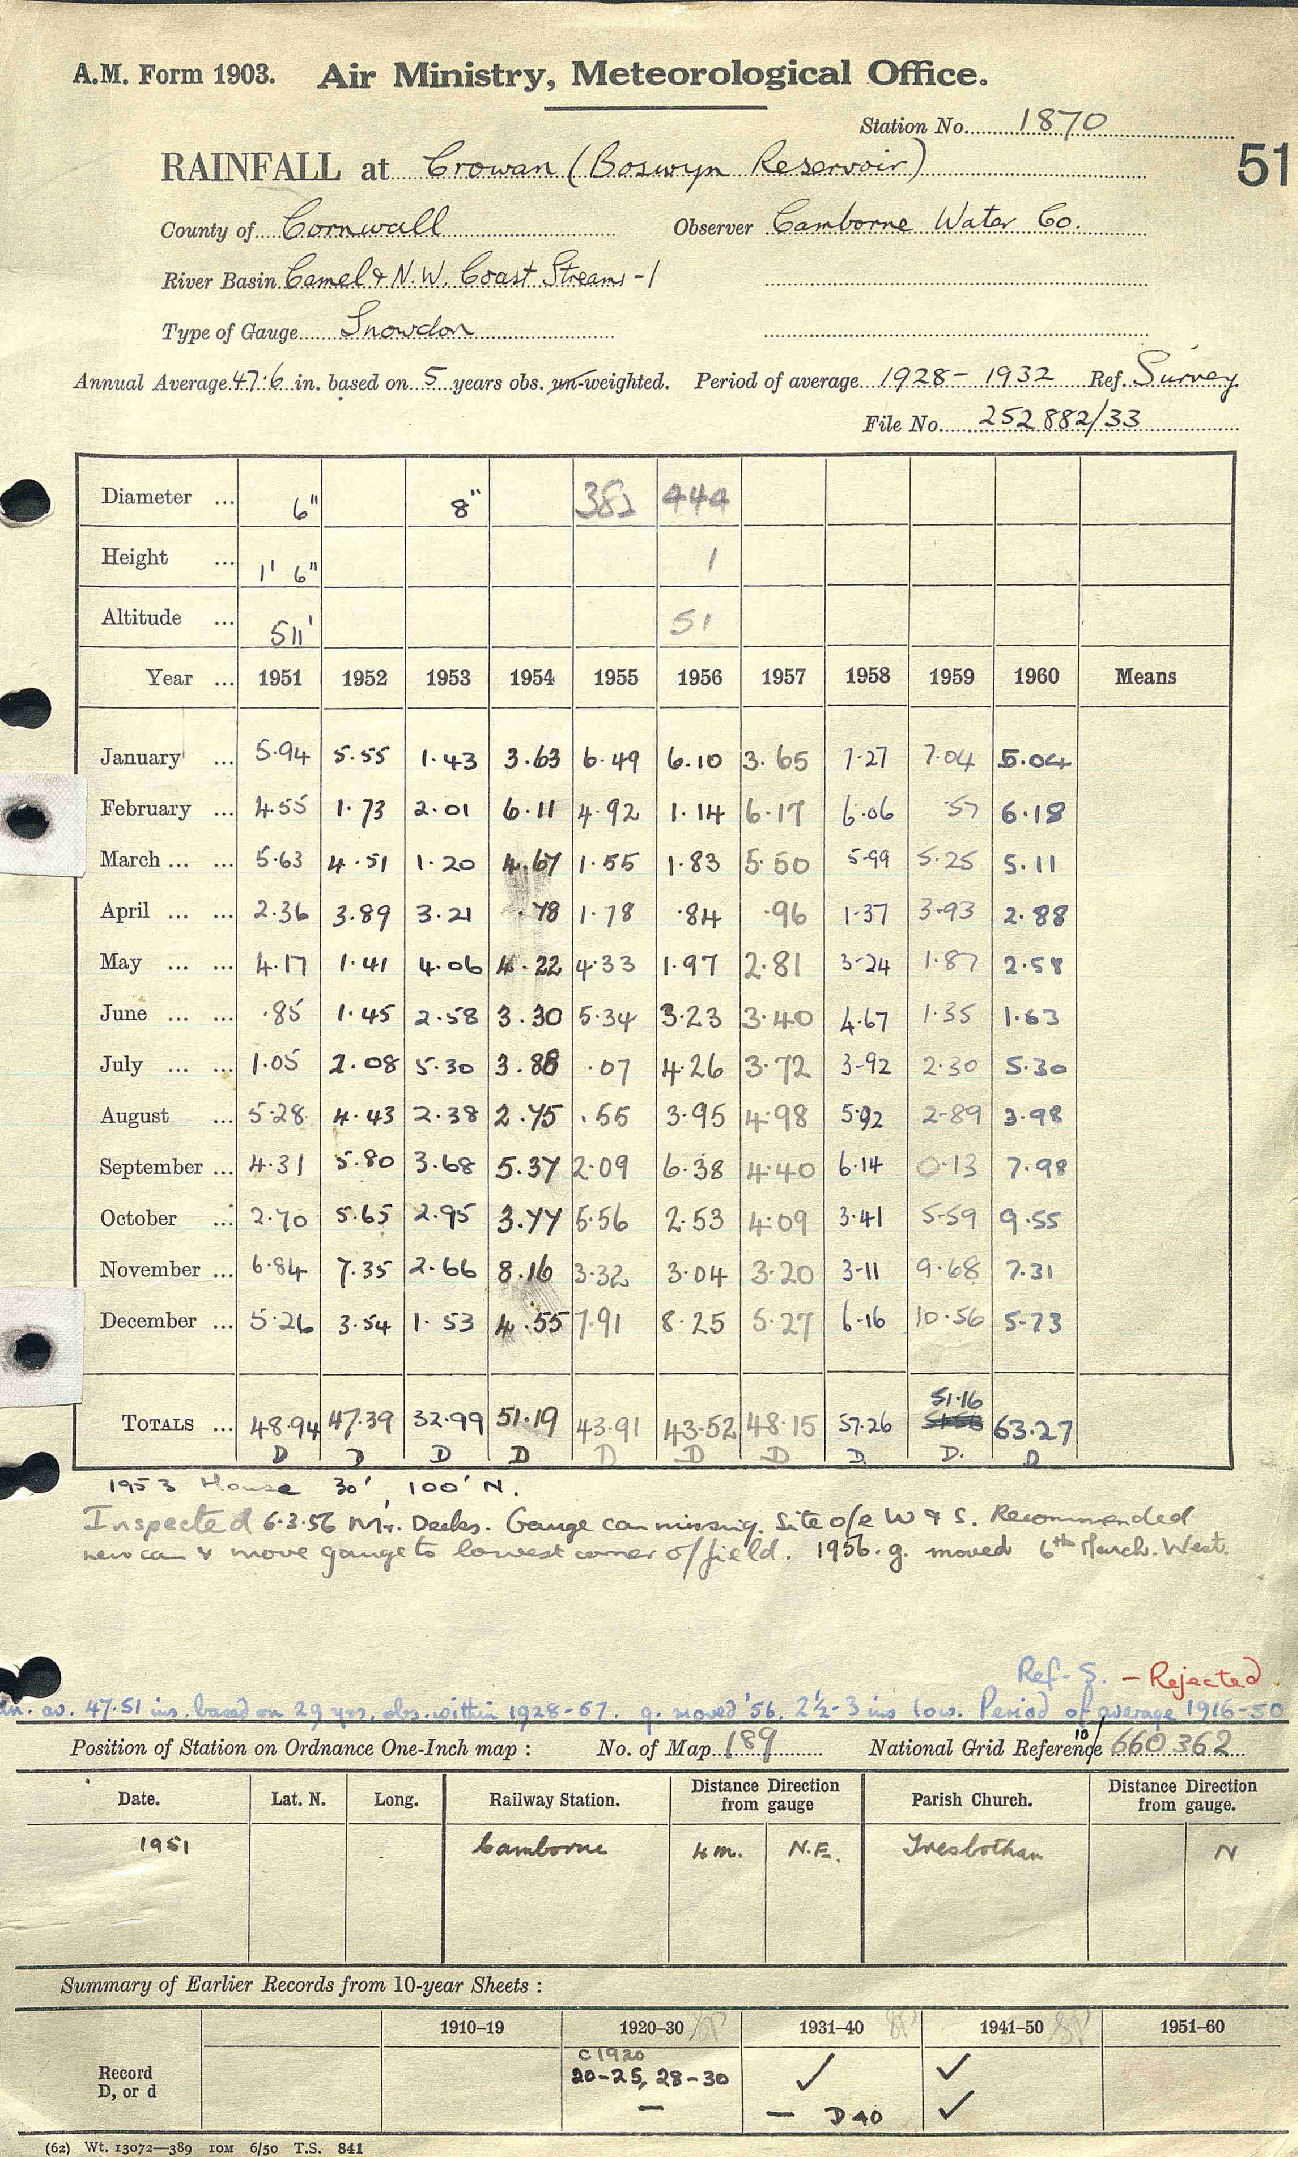 A.M. Form 1903. Air Ministry, Meteorological Office.
Station No. 1870
51
RAINFALL at Crowan (Boswyn Reservoir)
County of Cornwall Observer Camborne Water Co.
River Basin Camel & N.W. Coast Streams -1
Type of Gauge Snowdon
Annual Average 47.6 in. based on 5 years obs. un-weighted. Period of average 1928 - 1932 Ref. Survey
File No. 252882/33
Diameter ... 6" 8" 382 444
Height ... 1' 6" 1
Altitude ... 511' 51
Year ... 1951 1952 1953 1954 1955 1956 1957 1958 1959 1960 Means
January ... 5.94 5.55 1.43 3.63 6.49 6.10 3.65 7.27 7.04 5.04
February ... 4.55 1.73 2.01 6.11 4.92 1.14 6.17 6.06 .57 6.18
March ... ... 5.63 4.51 1.20 4.67 1.55 1.83 5.50 5.99 5.25 5.11
April ... ... 2.36 3.89 3.21 .78 1.78 .84 .96 1.37 3.93 2.88
May ... ... 4.17 1.41 4.06 4.22 4.33 1.97 2.81 3.24 1.87 2.58
June ... ... .85 1.45 2.58 3.30 5.34 3.23 3.40 4.67 1.35 1.63
July ... ... 1.05 2.08 5.30 3.88 .07 4.26 3.72 3.92 2.30 5.30
August ... 5.28 4.43 2.38 2.75 .55 3.95 4.98 5.92 2.89 3.98
September ... 4.31 5.80 3.68 5.37 2.09 6.38 4.40 6.14 0.13 7.98
October ... 2.70 5.65 2.95 3.77 5.56 2.53 4.09 3.41 5.59 9.55
November ... 6.84 7.35 2.66 8.16 3.32 3.04 3.20 3.11 9.68 7.31
December ... 5.26 3.54 1.53 4.55 7.91 8.25 5.27 6.16 10.56 5.73
51.16
TOTALS ... 48.94 47.39 32.99 51.19 43.91 43.52 48.15 57.26 63.27
D D D D D D D D. D. D
1953 House 30', 100' N.
Inspected 6.3.56 Mr. Deeks. Gauge can missing. Site o/e W & S. Recommended
new can & move gauge to lowest corner of field. 1956. g. moved 6th March. West.
Ref. S. - Rejected
av. 47.51 ins. based on 29 yrs. obs. within 1928-57. g. moved '56. 2½-3 ins low. Period of average 1916-50
Position of Station on Ordnance One-Inch map : No. of Map 189 National Grid Reference 10/660362
Date. Lat. N. Long. Railway Station. Distance Direction from gauge Parish Church. Distance Direction from gauge.
1951 Camborne 4 m. N.E. Tresbothan N
Summary of Earlier Records from 10-year Sheets :
1910-19 1920-30 1931-40 1941-50 1951-60
c 1920
Record 20-25, 28-30 ✓ ✓
D, or d — — D 40 ✓
(62) Wt. 13072—389 10M 6/50 T.S. 841